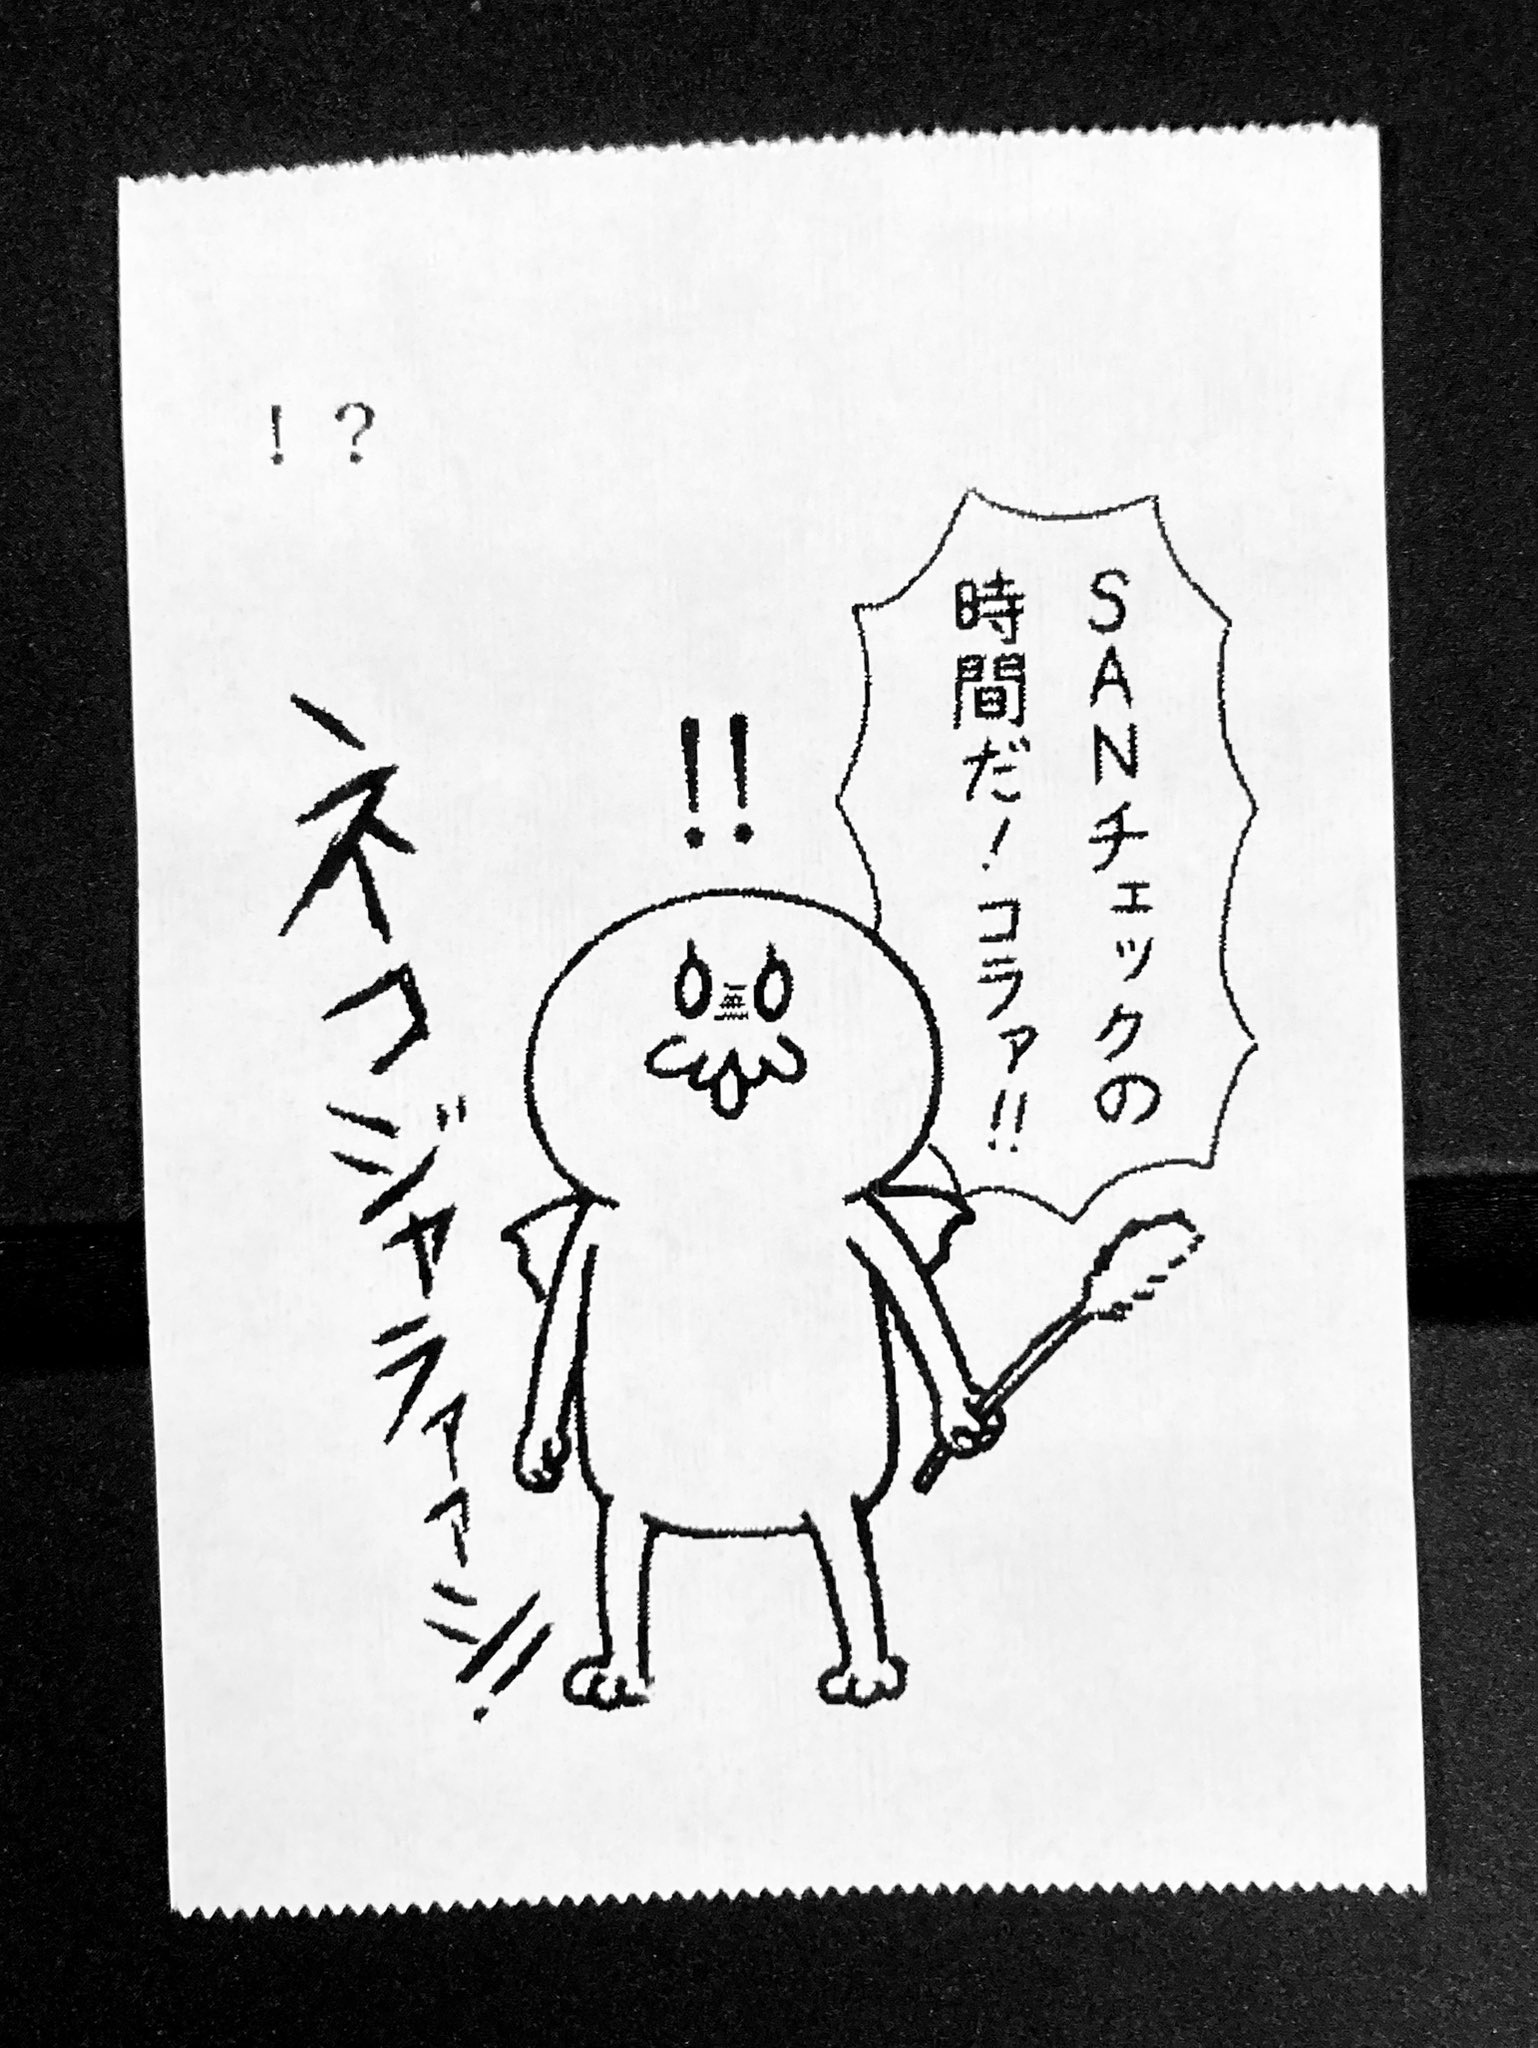 ！？
SANチェックの
時間だ！コラァ!!
!!
ネコジャラァァン!!